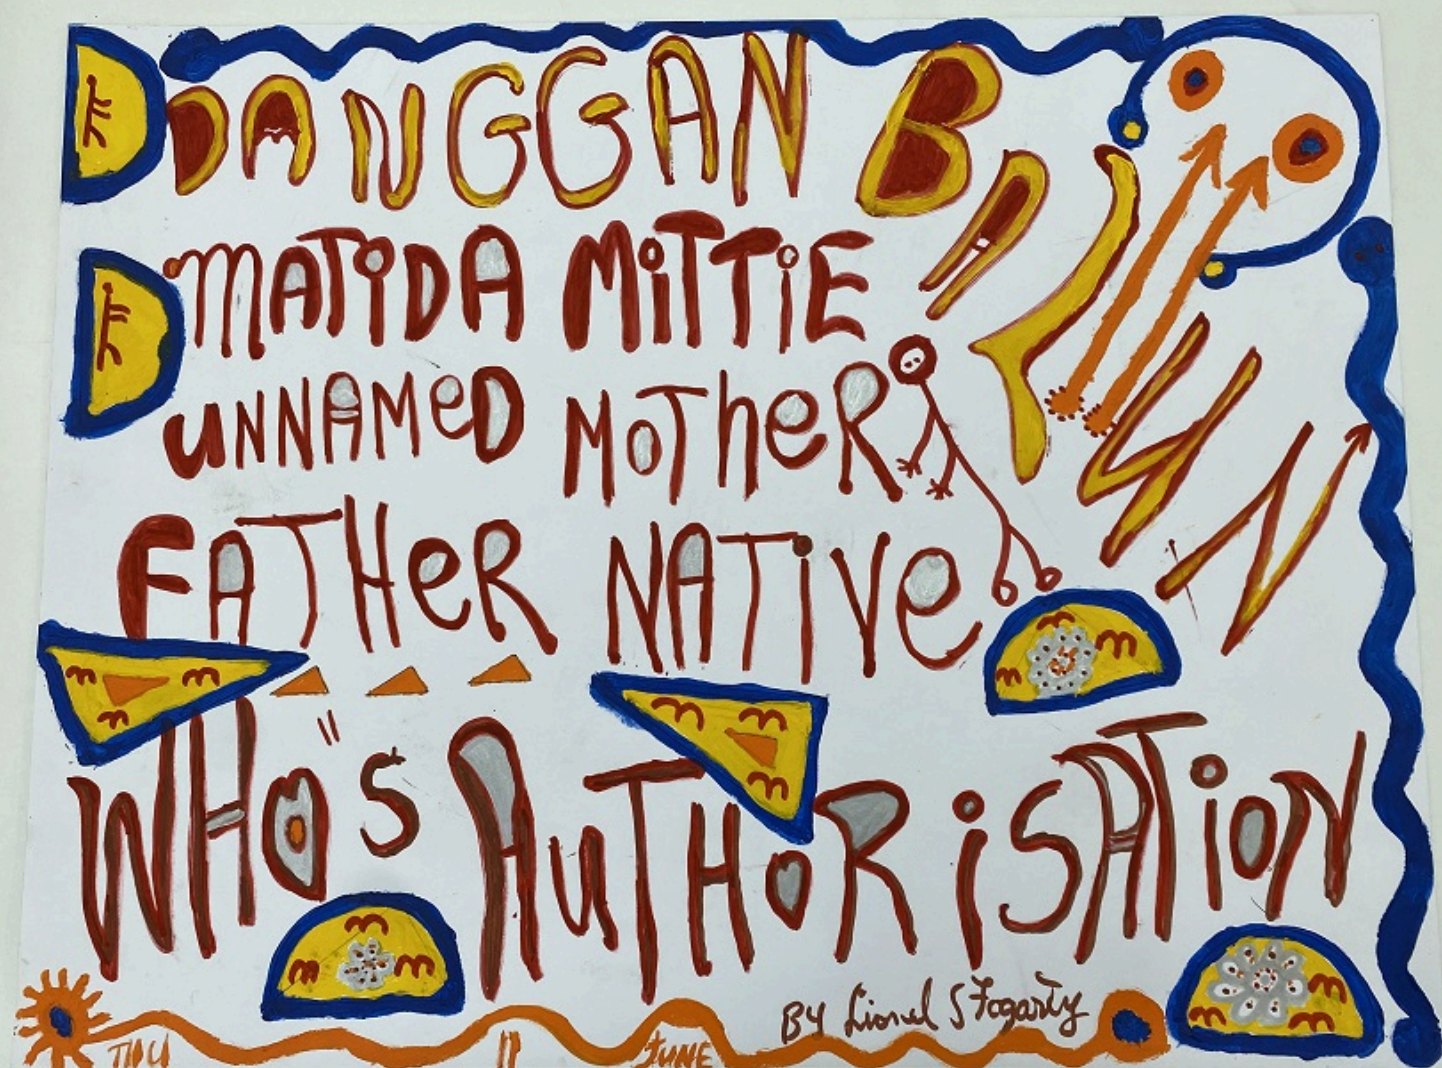 DANGGAN BALUN
MATiDA MiTTiE
UNNAMeD MoTheR
FATHeR NATiVe
WHo"s AuTHoRiSATioN
BY Lionel S Fogarty
THU 11 JUNE